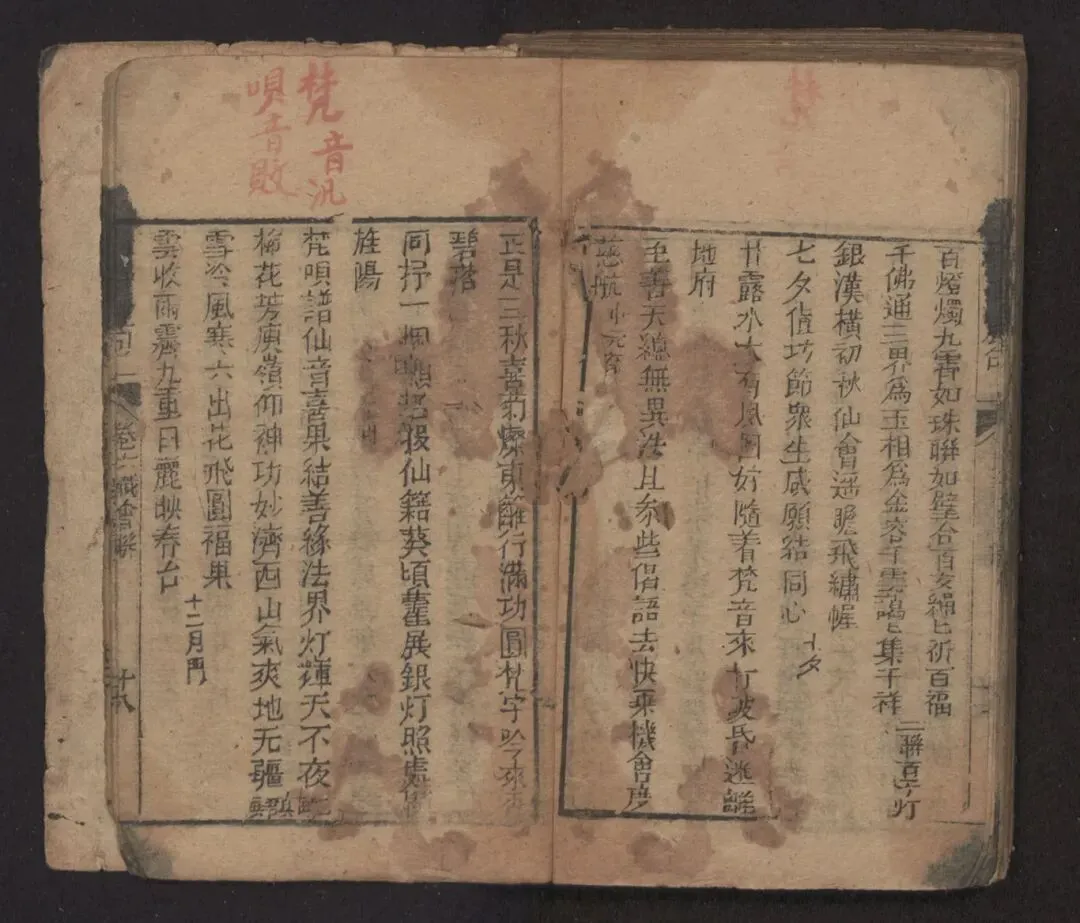 百燈燭九霄如珠聯如璧合百亥繩已祈百福
千佛通三界為玉相為金容千雲謁已集千祥 二聯百子灯
銀漢橫初秋仙會遥瞻飛繡幄
七夕值坊節眾生咸願結同心 七夕
甘露水大有風因好隨着梵音來打破昏迷離
地府
至善天緫無異法且参些偈語去快乘機會度
慈航 中元斉
正是三秋喜菊燦東籬行滿功圓梵字吟來
碧落
同抒一 仙籍葵頃藿展銀灯照處
旌陽
梵唄諧仙音喜果結善緣法界灯輝天不夜
梅花芳庾嶺仰神功妙濟西山氣爽地无疆
雪冷風寒六出花飛圓福果
雲收雨霽九重日麗映春台 十二月門
卷六 會聯
十八
梵音汎
唄音敗